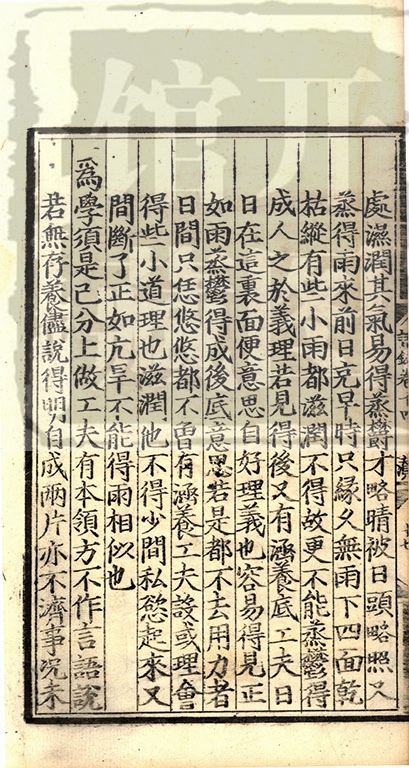 處濕潤其氣易得蒸欝才略晴被日頭略照又
蒸得雨來前日亢旱時只緣久無雨下四面乾
枯縱有些小雨都滋潤不得故更不能蒸欝得
成人之於義理若見得後又有涵養底工夫日
日在這裏面便意思自好理義也容易得見正
如雨蒸欝得成後底意思若是都不去用力者
日間只恁悠悠都不曾有涵養工夫設或理會
得些小道理也滋潤他不得少間私慾起來又
間斷了正如亢旱不能得雨相似也
為學須是己分上做工夫有本領方不作言語說
若無存養儘說得明自成兩片亦不濟事况未